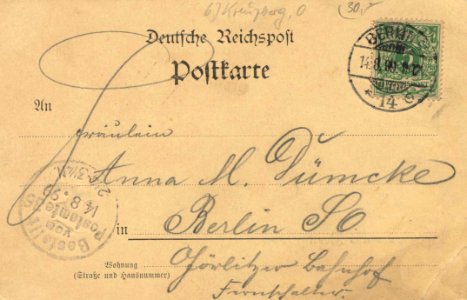 6) Kreuzberg, O
30.-
Deutsche Reichspost
Postkarte
BERLIN S
14.8.99
14 e
An
Fräulein
Anna M. Dümcke
in Berlin SO
Wohnung
(Straße und Hausnummer)
Görlitzer Bahnhof
Fernschalter
Bestellt
vom
Postamte
14.8.99